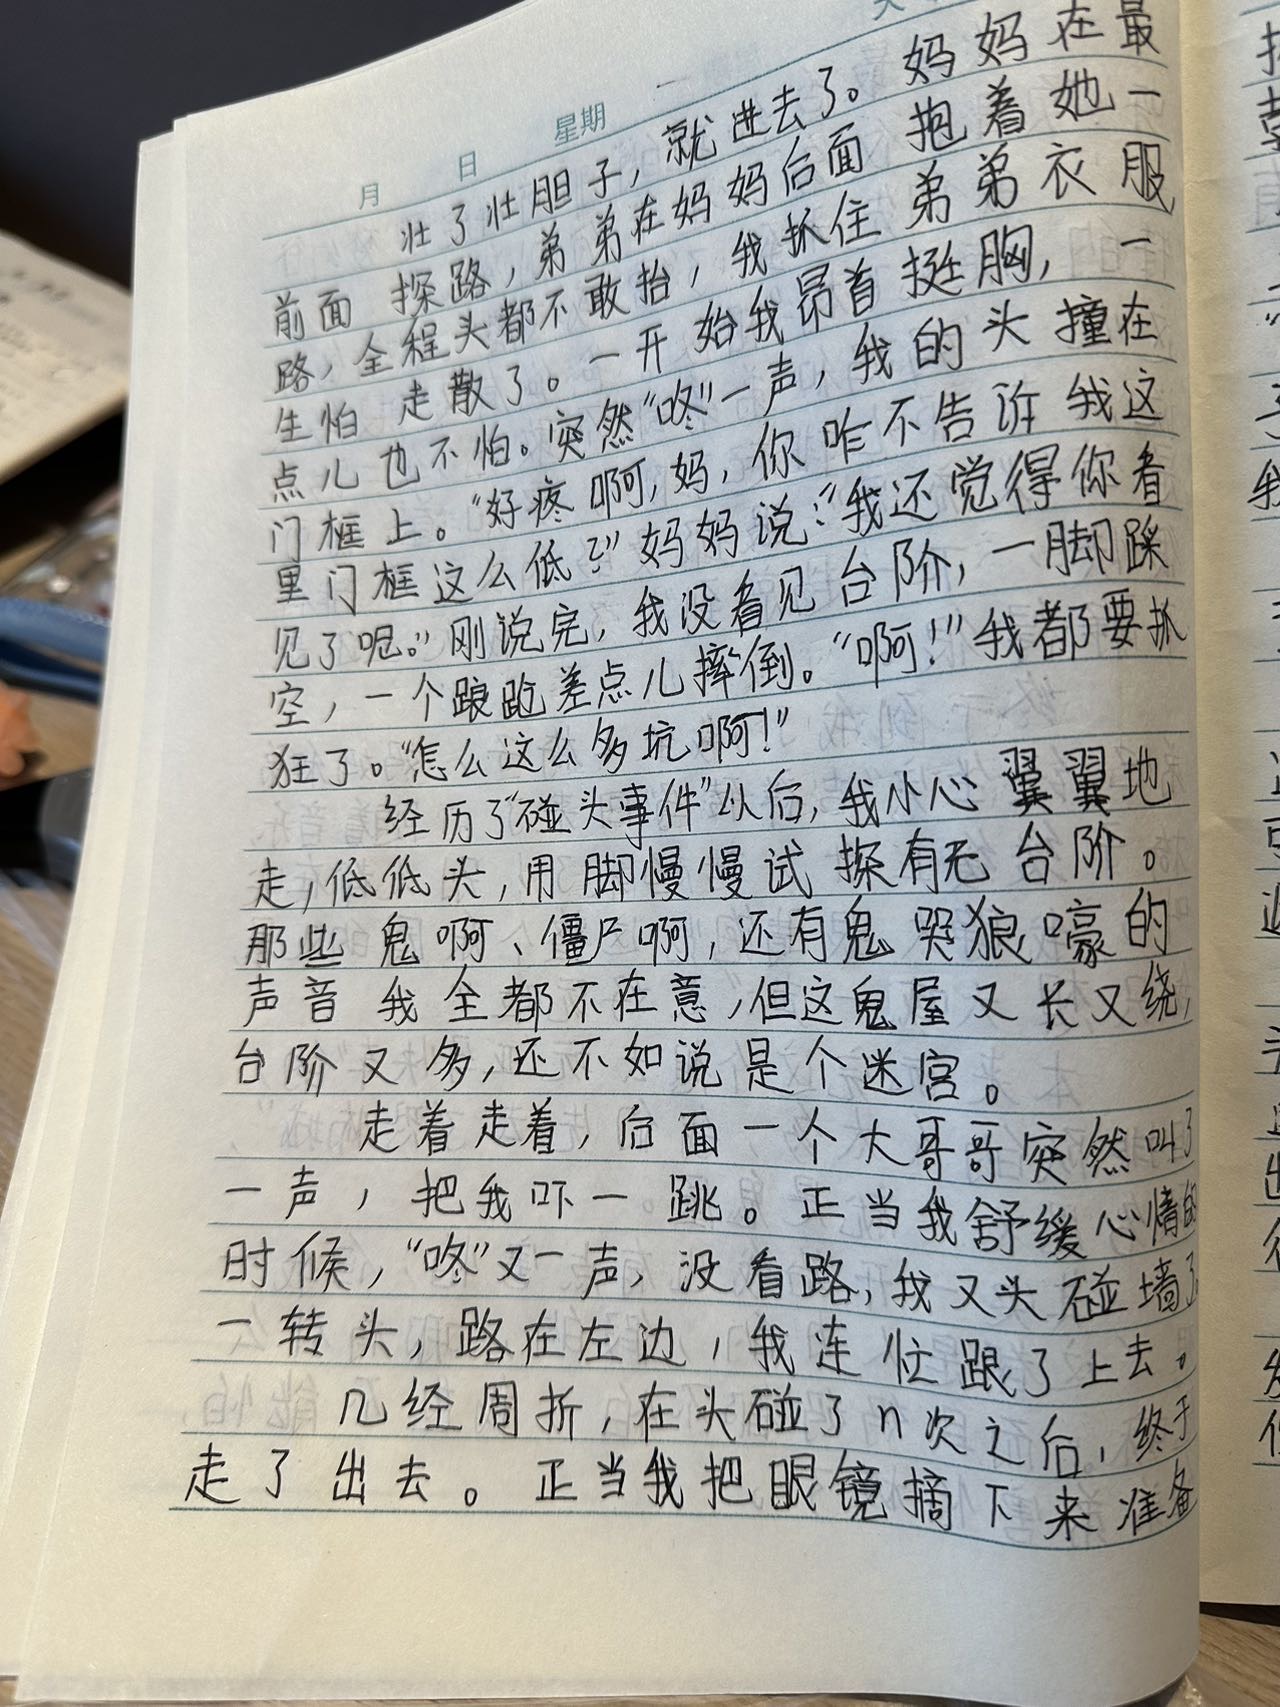 月 日 星期一
壮了壮胆子，就进去了。妈妈在最
前面探路，弟弟在妈妈后面抱着她一
路，全程头都不敢抬，我抓住弟弟衣服，
生怕走散了。一开始我昂首挺胸，一
点儿也不怕。突然“咚”一声，我的头撞在
门框上。“好疼啊，妈，你咋不告诉我这
里门框这么低？”妈妈说：“我还觉得你看
见了呢。”刚说完，我没看见台阶，一脚踩
空，一个踉跄差点儿摔倒。“啊！”我都要抓
狂了。“怎么这么多坑啊！”
经历了“碰头事件”以后，我小心翼翼地
走，低低头，用脚慢慢试探有无台阶。
那些鬼啊、僵尸啊，还有鬼哭狼嚎的
声音我全都不在意，但这鬼屋又长又绕，
台阶又多，还不如说是个迷宫。
走着走着，后面一个大哥哥突然叫了
一声，把我吓一跳。正当我舒缓心情的
时候，“咚”又一声，没看路，我又头碰墙了。
一转头，路在左边，我连忙跟了上去。
几经周折，在头碰了n次之后，终于
走了出去。正当我把眼镜摘下来准备